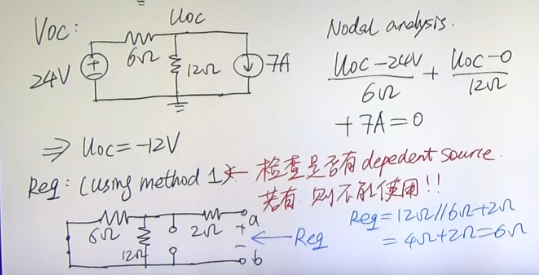 Voc:
Uoc
Nodal analysis.
24V
6Ω
12Ω
7A
Uoc-24V/6Ω + Uoc-0/12Ω
+7A=0
⇒ Uoc=-12V
Req: (using method 1)* ← 检查是否有depedent source.
若有, 则不能使用!!
6Ω
12Ω
2Ω
a
+
← Req
-
b
Req=12Ω//6Ω+2Ω
=4Ω+2Ω=6Ω